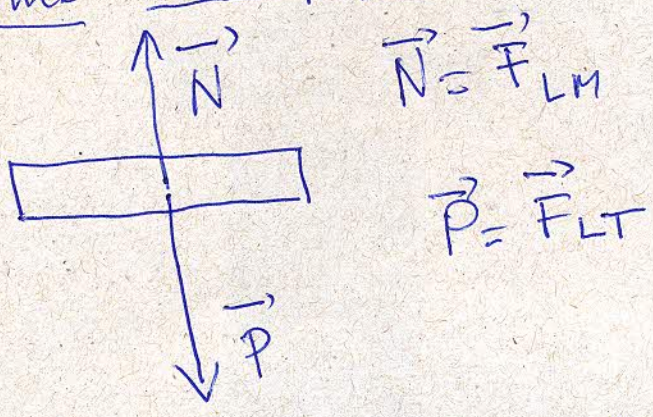 N⃗ N⃗ = F⃗ LM
P⃗ = F⃗ LT
P⃗